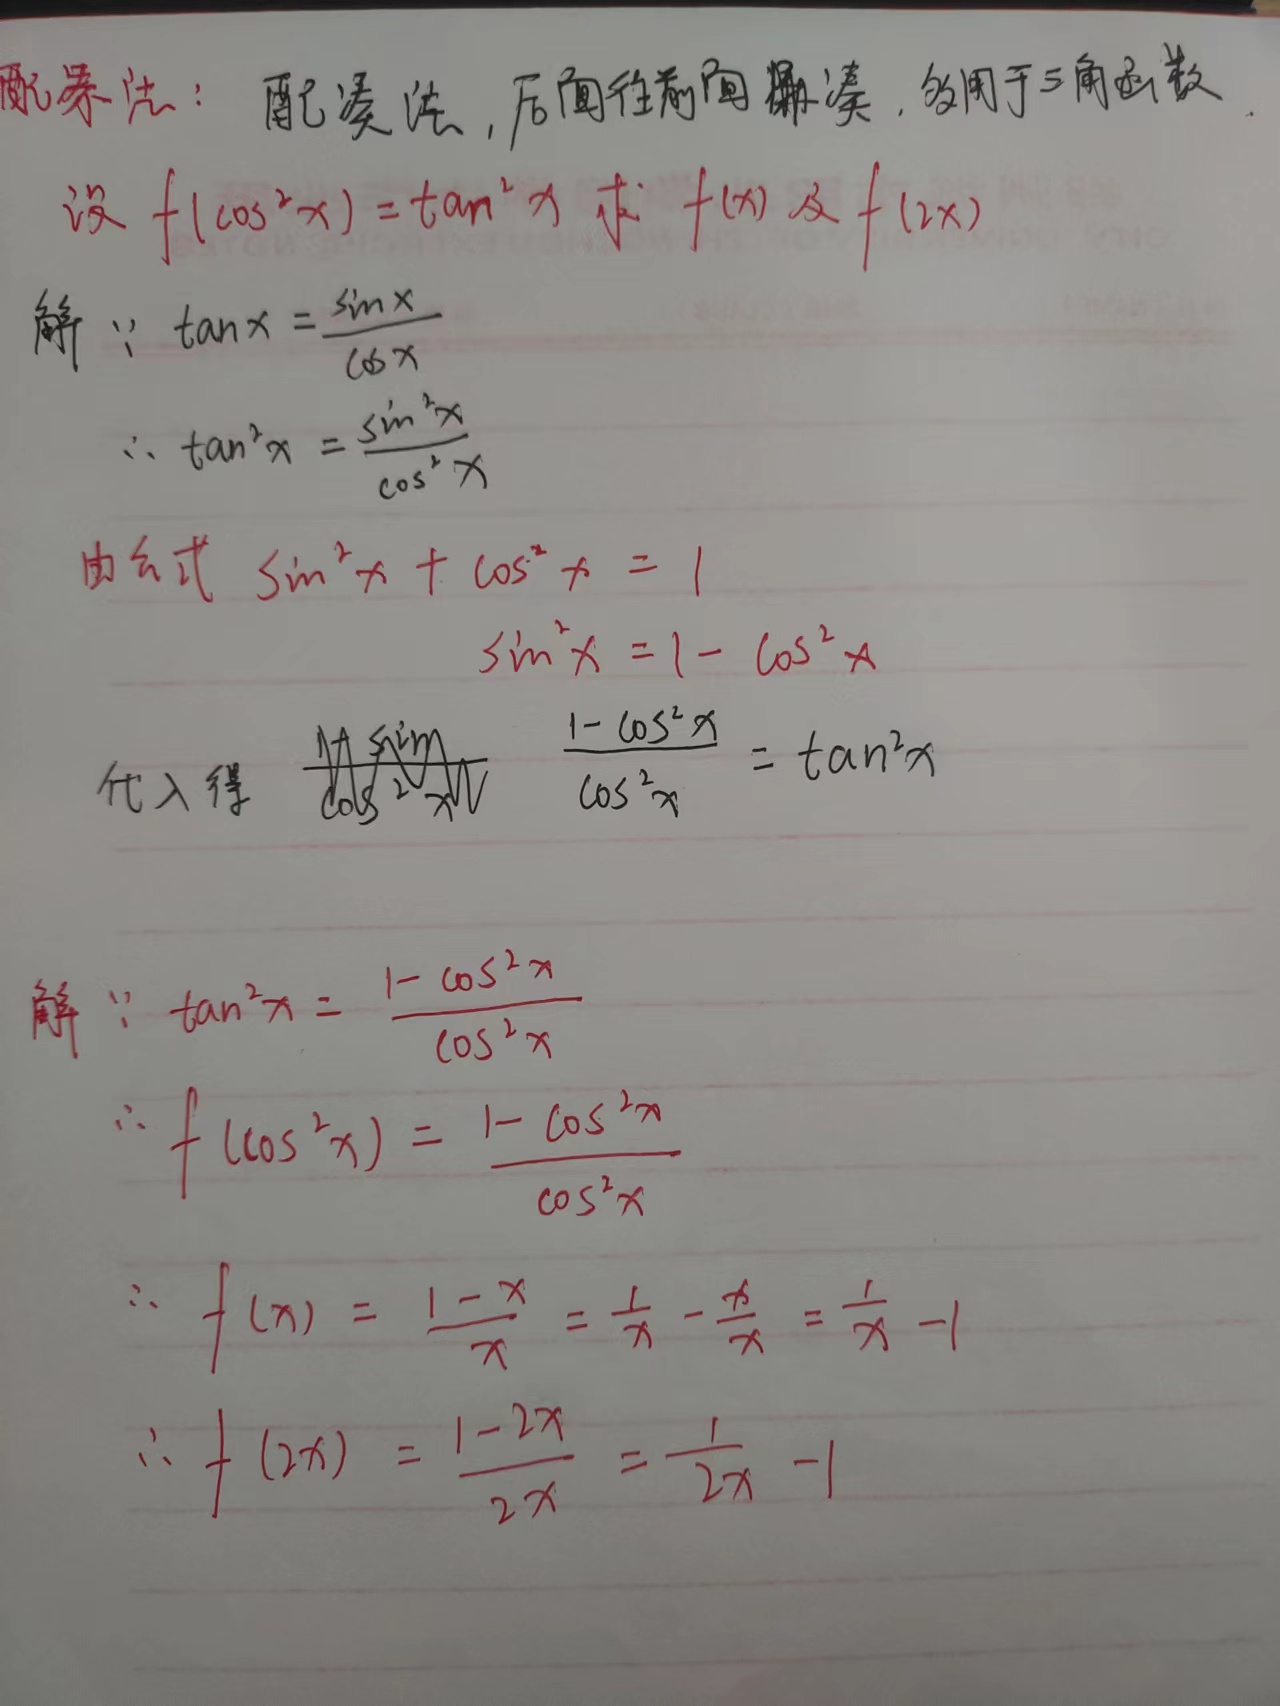 配凑法: 配凑法,后面往前面凑,多用于三角函数.
设 f(cos²x)=tan²x 求 f(x) 及 f(2x)
解 ∵ tanx = sinx/cosx
∴ tan²x = sin²x/cos²x
由公式 sin²x + cos²x = 1
sin²x = 1 - cos²x
代入得 (1-cos²x)/cos²x = tan²x
解 ∵ tan²x = (1-cos²x)/cos²x
∴ f(cos²x) = (1-cos²x)/cos²x
∴ f(x) = (1-x)/x = 1/x - x/x = 1/x - 1
∴ f(2x) = (1-2x)/2x = 1/2x - 1